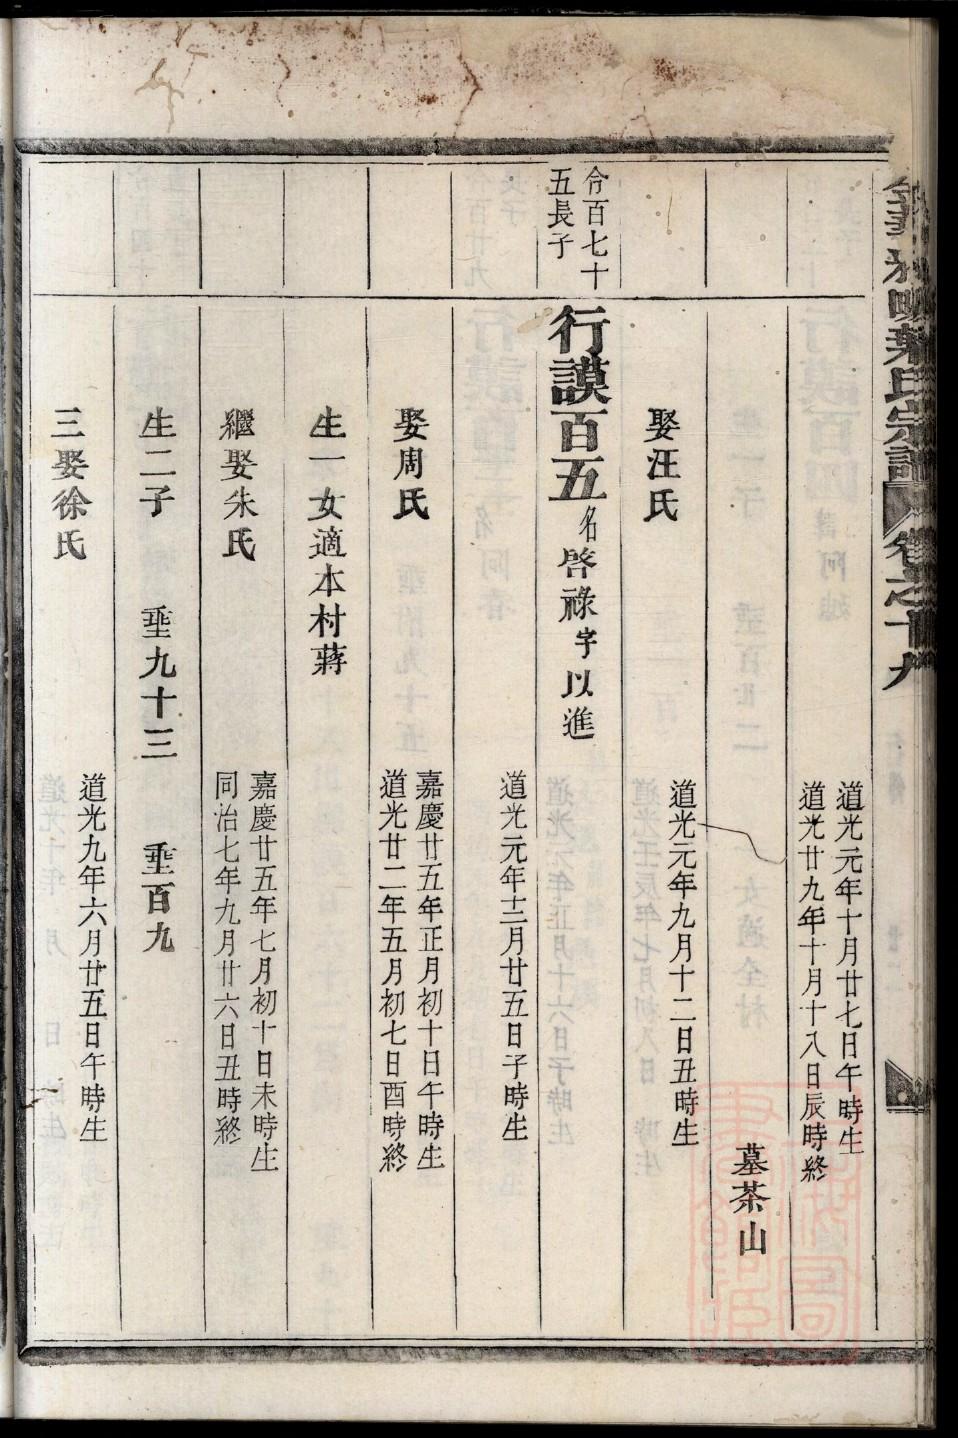 道光元年十月廿七日午時生
道光廿九年十月十八日辰時終
墓茶山
娶汪氏
道光元年九月十二日丑時生
令百七十
五長子
行謨百五名啓祿字以進
道光元年十二月廿五日子時生
娶周氏
嘉慶廿五年正月初十日午時生
道光廿二年五月初七日酉時終
生一女適本村蔣
繼娶朱氏
嘉慶廿五年七月初十日未時生
同治七年九月廿六日丑時終
生二子 垂九十三 垂百九
三娶徐氏
道光九年六月廿五日午時生
葉氏宗譜 卷之十九